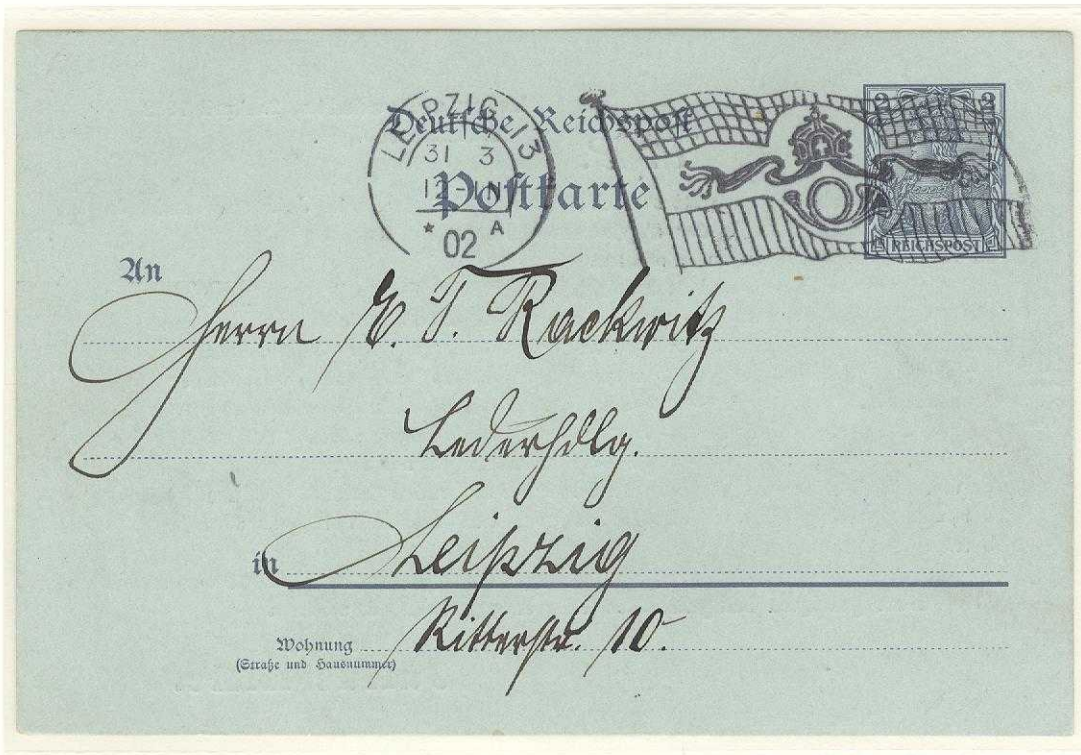 Deutsche Reichspost
Postkarte
LEIPZIG 13
31 3
12-1N
* A
02
2 2
REICHSPOST
An
Herrn E. T. Rackwitz
Lederhdlg.
in Leipzig
Wohnung Ritterstr. 10.
(Straße und Hausnummer)